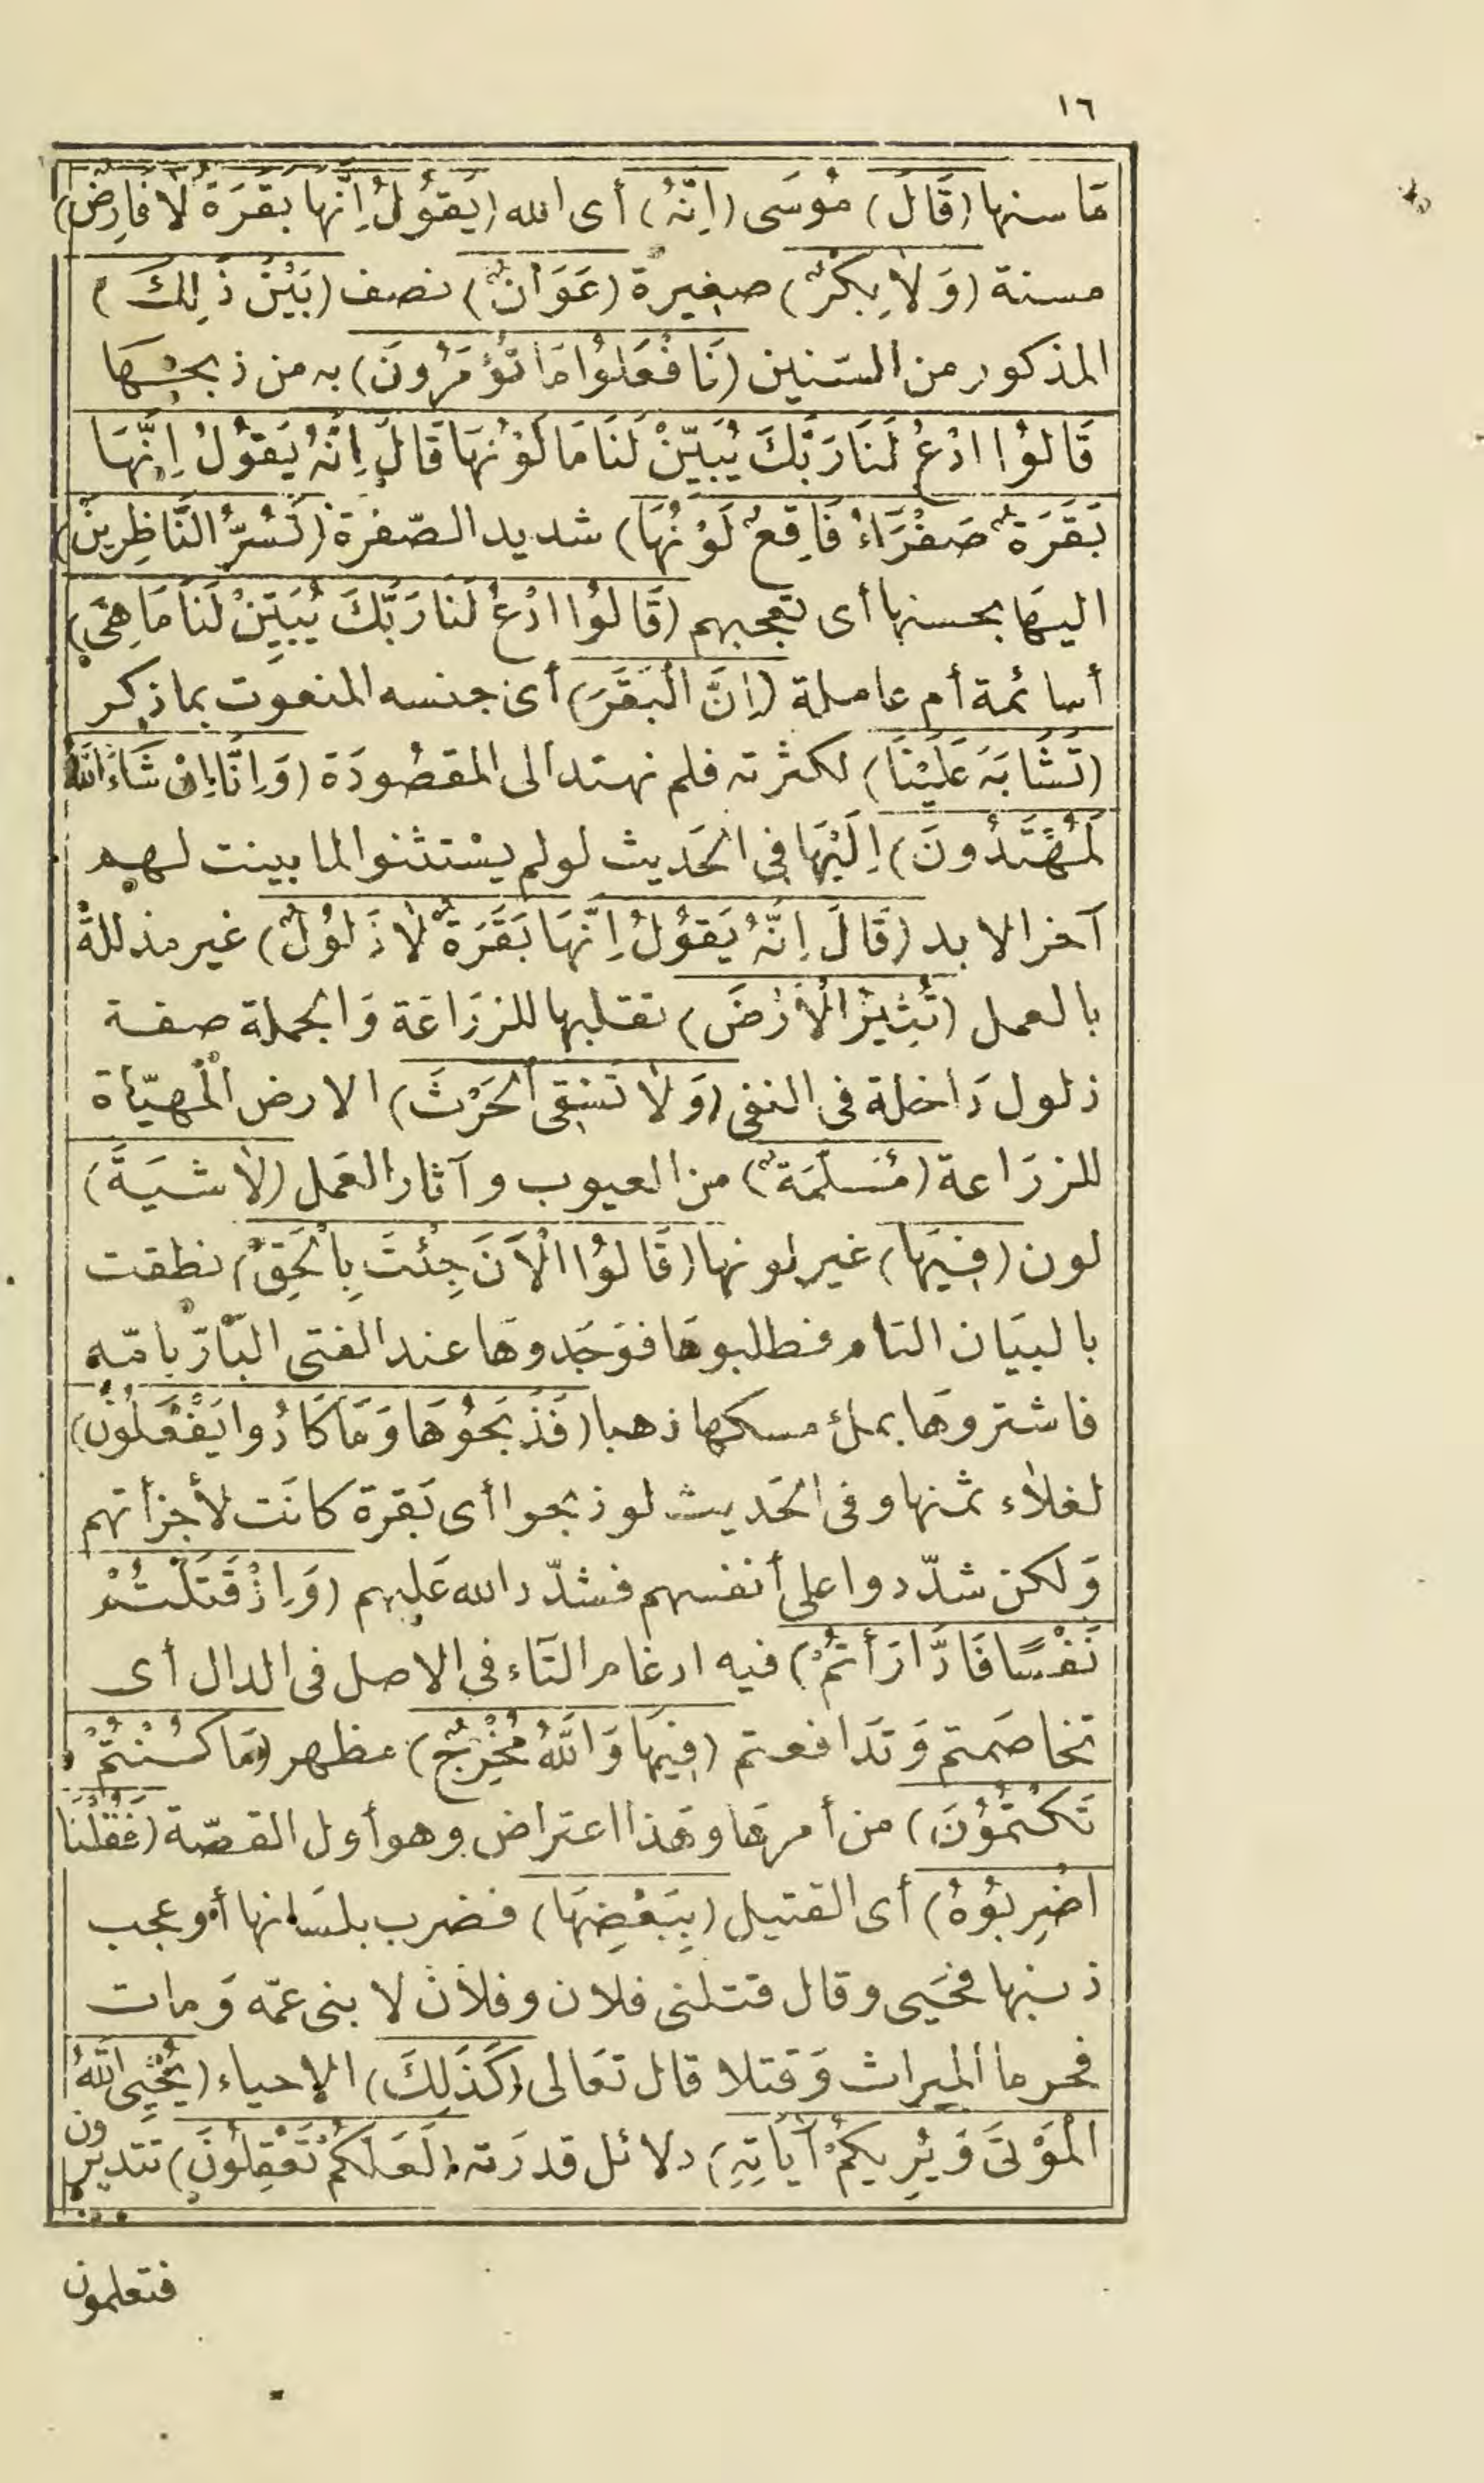 ١٦
مَا سنها (قَالَ) مُوسَى (اِنَّهُ) أى الله (يَقُولُ اِنَّها بَقَرَة لَا فارِض)
مسنة (وَلَا بِكْرٌ) صغيرة (عَوَانٌ) نصف (بَيْنَ ذَلِكَ)
المذكور من السّنين (فَافْعَلُوا مَا تُؤْمَرُونَ) به من ذبحهَا
قَالُوا ادْعُ لَنَا رَبَّكَ يُبَيِّنْ لَنَا مَا لَوْنُهَا قَالَ اِنَّهُ يَقُولُ اِنَّهَا
بَقَرَةٌ صَفْرَاءُ فَاقِعٌ لَوْنُهَا) شديد الصّفرة (تَسُرُّ النَّاظِرِينَ)
اليهَا بحسنها أى تعجبهم (قَالُوا ادْعُ لَنَا رَبَّكَ يُبَيِّنْ لَنَا مَا هِيَ)
أسائمة أم عاملة (اِنَّ الْبَقَرَ) أى جنسه المنعوت بما ذكر
(تَشَابَهَ عَلَيْنَا) لكثرته فلم نهتد الى المقصُودَة (وَاِنَّا اِنْ شَاءَ اللهُ
لَمُهْتَدُونَ) اِلَيْهَا فى الحَديث لو لم يسْتثنوا لما بينت لهم
آخر الابد (قَالَ اِنَّهُ يَقُولُ اِنَّهَا بَقَرَةٌ لَا ذَلُولٌ) غير مذللة
بالعمل (تُثِيرُ الْأَرْضَ) تقلبها للزرَاعَة وَالجملة صفة
ذلول دَاخلة فى النفى (وَلَا تَسْقِى الْحَرْثَ) الارض المهيّاة
للزرَاعة (مُسَلَّمَةٌ) من العيوب وآثار العَمل (لَا شيَةَ)
لون (فِيهَا) غير لونها (قَالُوا الْآنَ جِئْتَ بِالْحَقِّ) نطقت
بالبيَان التام فطلبوهَا فوَجَدوهَا عند الفتى البَارّ بامّه
فاشتروهَا بملء مسكها ذهبا (فَذَبَحُوهَا وَمَا كَادُوا يَفْعَلُونَ)
لغلاء ثمنها وفى الحَديث لو ذبحوا أى بَقرة كانَت لأجزأتهم
وَلكن شدّدوا على أنفسهم فشدّد الله عَليهم (وَاِذْ قَتَلْتُمْ
نَفْسًا فَادَّارَأتُمْ) فيه ادغام التاء فى الاصل فى الدال أى
تخاصَمتم وَتدَافعتم (فِيهَا وَاللَّهُ مُخْرِجٌ) مظهر (مَا كُنْتُمْ
تَكْتُمُونَ) من أمرهَا وهَذا اعتراض وهو أول القصّة (فَقُلْنَا
اضْرِبُوهُ) أى القتيل (بِبَعْضِهَا) فضرب بلسَانها أو عجب
ذنبها فحَيى وقال قتلنى فلان وفلان لابنى عمّه وَمات
فحرما الميراث وَقتلا قال تعَالى (كَذَلِكَ) الاحياء (يُحْيِى اللَّهُ
الْمَوْتَى وَيُرِيكُمْ آيَاتِهِ) دلائل قدرَته (لَعَلَّكُمْ تَعْقِلُونَ) تتدبرون
فتعلمون